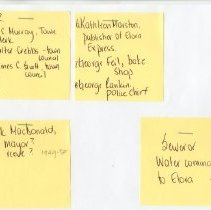 S Murray, Town
Clerk
Crebbs - town
council
James C. Scott, town
council
Kathleen Marston,
publisher of Elora
Express.
George Feil, bake
shop
George Rankin,
police chief
MacDonald,
mayor?
reeve? 1949-50
Sewer or
Water comm
to Elora